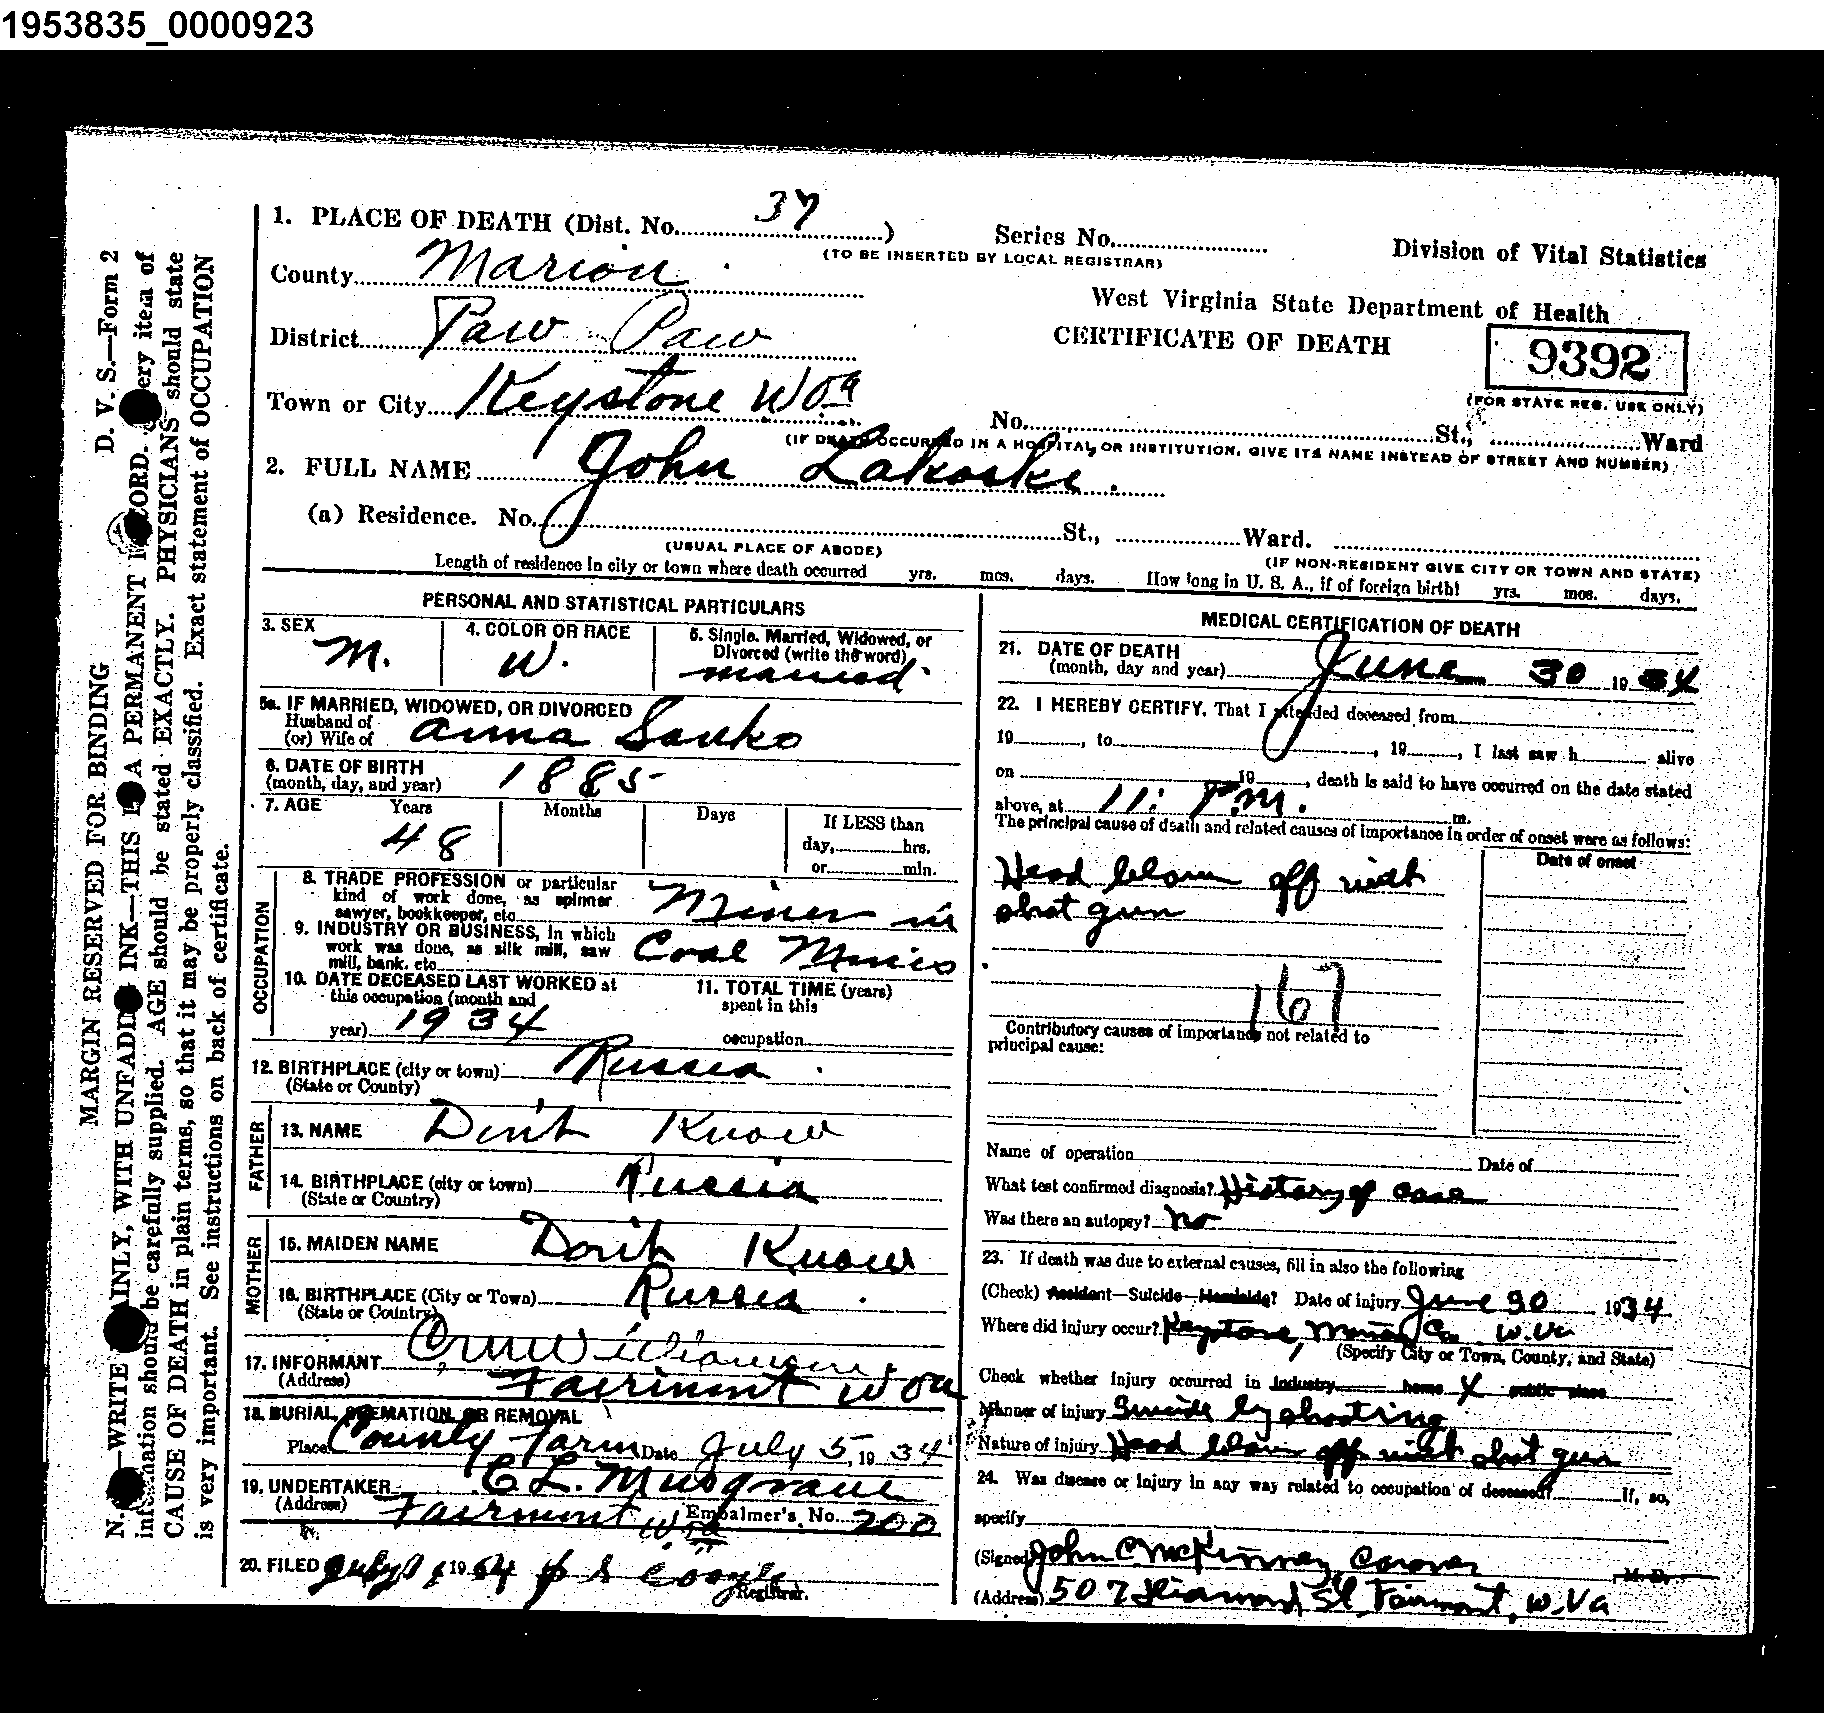 1953835_0000923
D. V. S.—Form 2
MARGIN RESERVED FOR BINDING
N. —WRITE AINLY, WITH UNFADI INK—THIS A PERMANENT CORD. ery item of
information should be carefully supplied. AGE should be stated EXACTLY. PHYSICIANS should state
CAUSE OF DEATH in plain terms, so that it may be properly classified. Exact statement of OCCUPATION
is very important. See instructions on back of certificate.
1. PLACE OF DEATH (Dist. No. 37 )
Series No.
(TO BE INSERTED BY LOCAL REGISTRAR)
Division of Vital Statistics
County Marion
West Virginia State Department of Health
District Paw Paw
CERTIFICATE OF DEATH
9392
(FOR STATE REG. USE ONLY)
Town or City Keystone W Va
No. St., Ward
(IF DEATH OCCURRED IN A HOSPITAL OR INSTITUTION, GIVE ITS NAME INSTEAD OF STREET AND NUMBER)
2. FULL NAME John Lakoski
(a) Residence. No. St., Ward.
(USUAL PLACE OF ABODE)
(IF NON-RESIDENT GIVE CITY OR TOWN AND STATE)
Length of residence in city or town where death occurred yrs. mos. days. How long in U. S. A., if of foreign birth? yrs. mos. days.
PERSONAL AND STATISTICAL PARTICULARS
3. SEX
M.
4. COLOR OR RACE
W.
5. Single, Married, Widowed, or
Divorced (write the word)
married
5a. IF MARRIED, WIDOWED, OR DIVORCED
Husband of
(or) Wife of Anna Sanko
6. DATE OF BIRTH
(month, day, and year) 1885
7. AGE Years Months Days If LESS than
48
day, hrs.
or min.
OCCUPATION
8. TRADE PROFESSION or particular
kind of work done, as spinner
sawyer, bookkeeper, etc. Miner in
9. INDUSTRY OR BUSINESS, in which
work was done, as silk mill, saw
mill, bank, etc. Coal Mines
10. DATE DECEASED LAST WORKED at
this occupation (month and
year) 1934
11. TOTAL TIME (years)
spent in this
occupation
12. BIRTHPLACE (city or town) Russia
(State or County)
FATHER
13. NAME Don't Know
14. BIRTHPLACE (city or town) Russia
(State or Country)
MOTHER
15. MAIDEN NAME Don't Know
16. BIRTHPLACE (City or Town) Russia
(State or Country)
17. INFORMANT Williamson
(Address) Fairmont W Va
18. BURIAL, CREMATION, OR REMOVAL
Place County Farm Date July 5, 1934
19. UNDERTAKER C L. Musgrave
(Address) Fairmont W. Va Embalmer's No. 200
20. FILED July 1934
Registrar.
MEDICAL CERTIFICATION OF DEATH
21. DATE OF DEATH
(month, day and year) June 30 1934
22. I HEREBY CERTIFY, That I attended deceased from
19 , to , 19 , I last saw h alive
on 19 , death is said to have occurred on the date stated
above, at 11: P.M. m.
The principal cause of death and related causes of importance in order of onset were as follows:
Date of onset
Head blown off with
shot gun
167
Contributory causes of importance not related to
principal cause:
Name of operation Date of
What test confirmed diagnosis? History of case
Was there an autopsy? No
23. If death was due to external causes, fill in also the following
(Check) Accident—Suicide—Homicide? Date of injury June 30 1934
Where did injury occur? Keystone, Marion Co. W. Va
(Specify City or Town, County, and State)
Check whether injury occurred in industry home X public place
Manner of injury Suicide by shooting
Nature of injury Head blown off with shot gun
24. Was disease or injury in any way related to occupation of deceased? If, so,
specify
(Signed) John C McKinney, Coroner M. D.
(Address) 507 Diamond St. Fairmont, W. Va